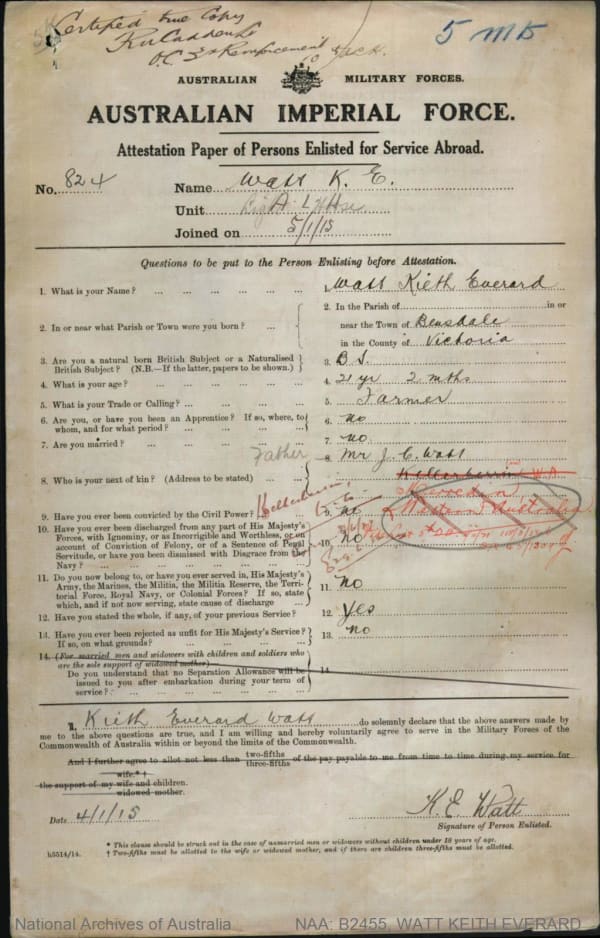 Certified true Copy
O.C. Reinforcement
5 MD
AUSTRALIAN MILITARY FORCES.
AUSTRALIAN IMPERIAL FORCE.
Attestation Paper of Persons Enlisted for Service Abroad.
No. 824 Name Watt K. E.
Unit
Joined on 5/1/15
Questions to be put to the Person Enlisting before Attestation.
1. What is your Name? ... 1. Watt Kieth Everard
2. In or near what Parish or Town were you born? ... 2. In the Parish of in or
near the Town of Bensdale
in the County of Victoria
3. Are you a natural born British Subject or a Naturalised
British Subject? (N.B.—If the latter, papers to be shown.) 3. B S.
4. What is your age? ... 4. 21 yr 2 mths
5. What is your Trade or Calling? ... 5. Farmer
6. Are you, or have you been an Apprentice? If so, where, to
whom, and for what period? ... 6. no
7. Are you married? ... 7. no
Father
8. Who is your next of kin? (Address to be stated) ... 8. Mr J. C. Watt
Kellerberrin W.A.
Merredin
Western Australia
Kellerberrin,
9. Have you ever been convicted by the Civil Power? 9. no
10. Have you ever been discharged from any part of His Majesty's
Forces, with Ignominy, or as Incorrigible and Worthless, or on
account of Conviction of Felony, or of a Sentence of Penal
Servitude, or have you been Dismissed with Disgrace from the
Navy? ... 10. No
11. Do you now belong to, or have you ever served in, His Majesty's
Army, the Marines, the Militia, the Militia Reserve, the Terri-
torial Force, Royal Navy, or Colonial Forces? If so, state
which, and if not now serving, state cause of discharge ... 11. No
12. Have you stated the whole, if any, of your previous Service? 12. Yes
13. Have you ever been rejected as unfit for His Majesty's Service?
If so, on what grounds? ... 13. no
14. (For married men and widowers with children and soldiers who
are the sole support of widowed mother)—
Do you understand that no Separation Allowance will be
issued to you after embarkation during your term of
service? ... 14.
I, Kieth Everard Watt do solemnly declare that the above answers made by
me to the above questions are true, and I am willing and hereby voluntarily agree to serve in the Military Forces of the
Commonwealth of Australia within or beyond the limits of the Commonwealth.
And I further agree to allot not less than two-fifths three-fifths of the pay payable to me from time to time during my service for
wife.*†
the support of my wife and children.
widowed mother.
Date 4/1/15
K. E. Watt
Signature of Person Enlisted.
* This clause should be struck out in the case of unmarried men or widowers without children under 18 years of age.
† Two-fifths must be allotted to the wife or widowed mother, and if there are children three-fifths must be allotted.
b5514/14.
National Archives of Australia NAA: B2455, WATT KEITH EVERARD